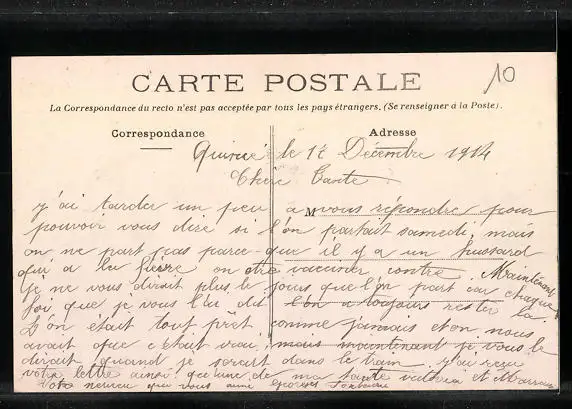 CARTE POSTALE
10
La Correspondance du recto n'est pas acceptée par tous les pays étrangers. (Se renseigner à la Poste).
Correspondance
Adresse
le 17 Décembre 1914
Chère Tante
M
j'ai tarder un peu a vous répondre pour
pouvoir vous dire si l'on partait samedi, mais
on ne part pas parce que il y a un hussard
qui a la fièvre on être vacciner contre. Maintenant
je ne vous dirait plus le jours que l'on part car chaque
foi que je vous l'ai dit l'on a toujours rester la.
L'on était tout prêt comme jamais et on nous
avait dit que c'était vrai, mais maintenant je vous le
dirait quand je serait dans le train j'ai reçu
votre lettre ainsi qu'une de ma tante et
Votre neveu qui vous aime